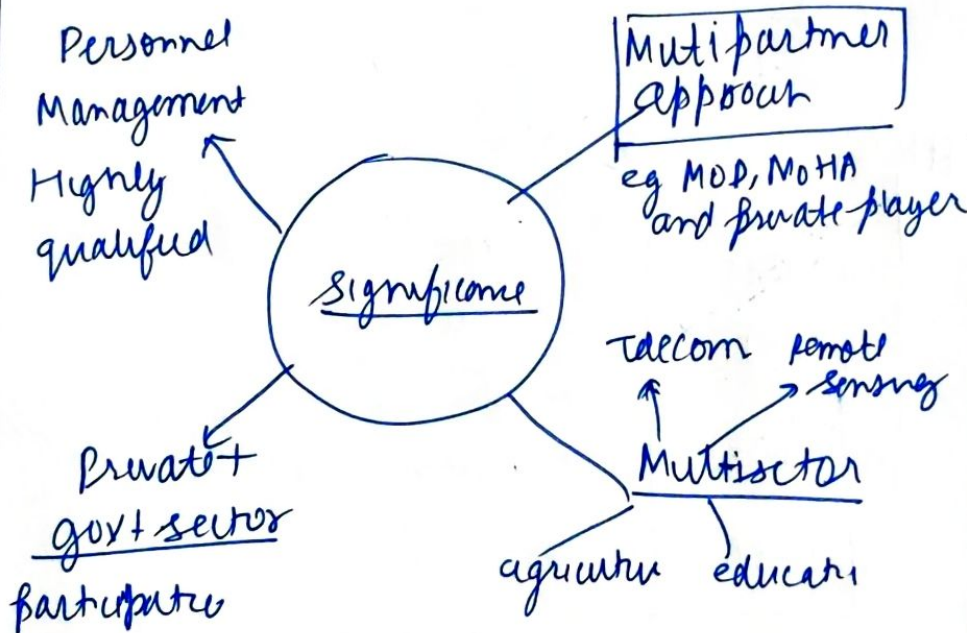 Personnel
Management
Highly
qualified
Mutipartner
approach
eg MOD, MoHA
and private player
significance
Telecom
remote
sensing
Multisector
agricultu
educati
Private +
govt sector
participatio